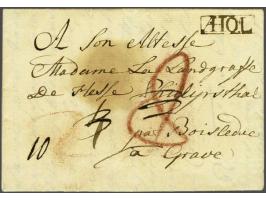 AHOL
A Son Altesse
Madame La Landgraffe
De Hesse Philipsthal
par Boisleduc
à Grave
10